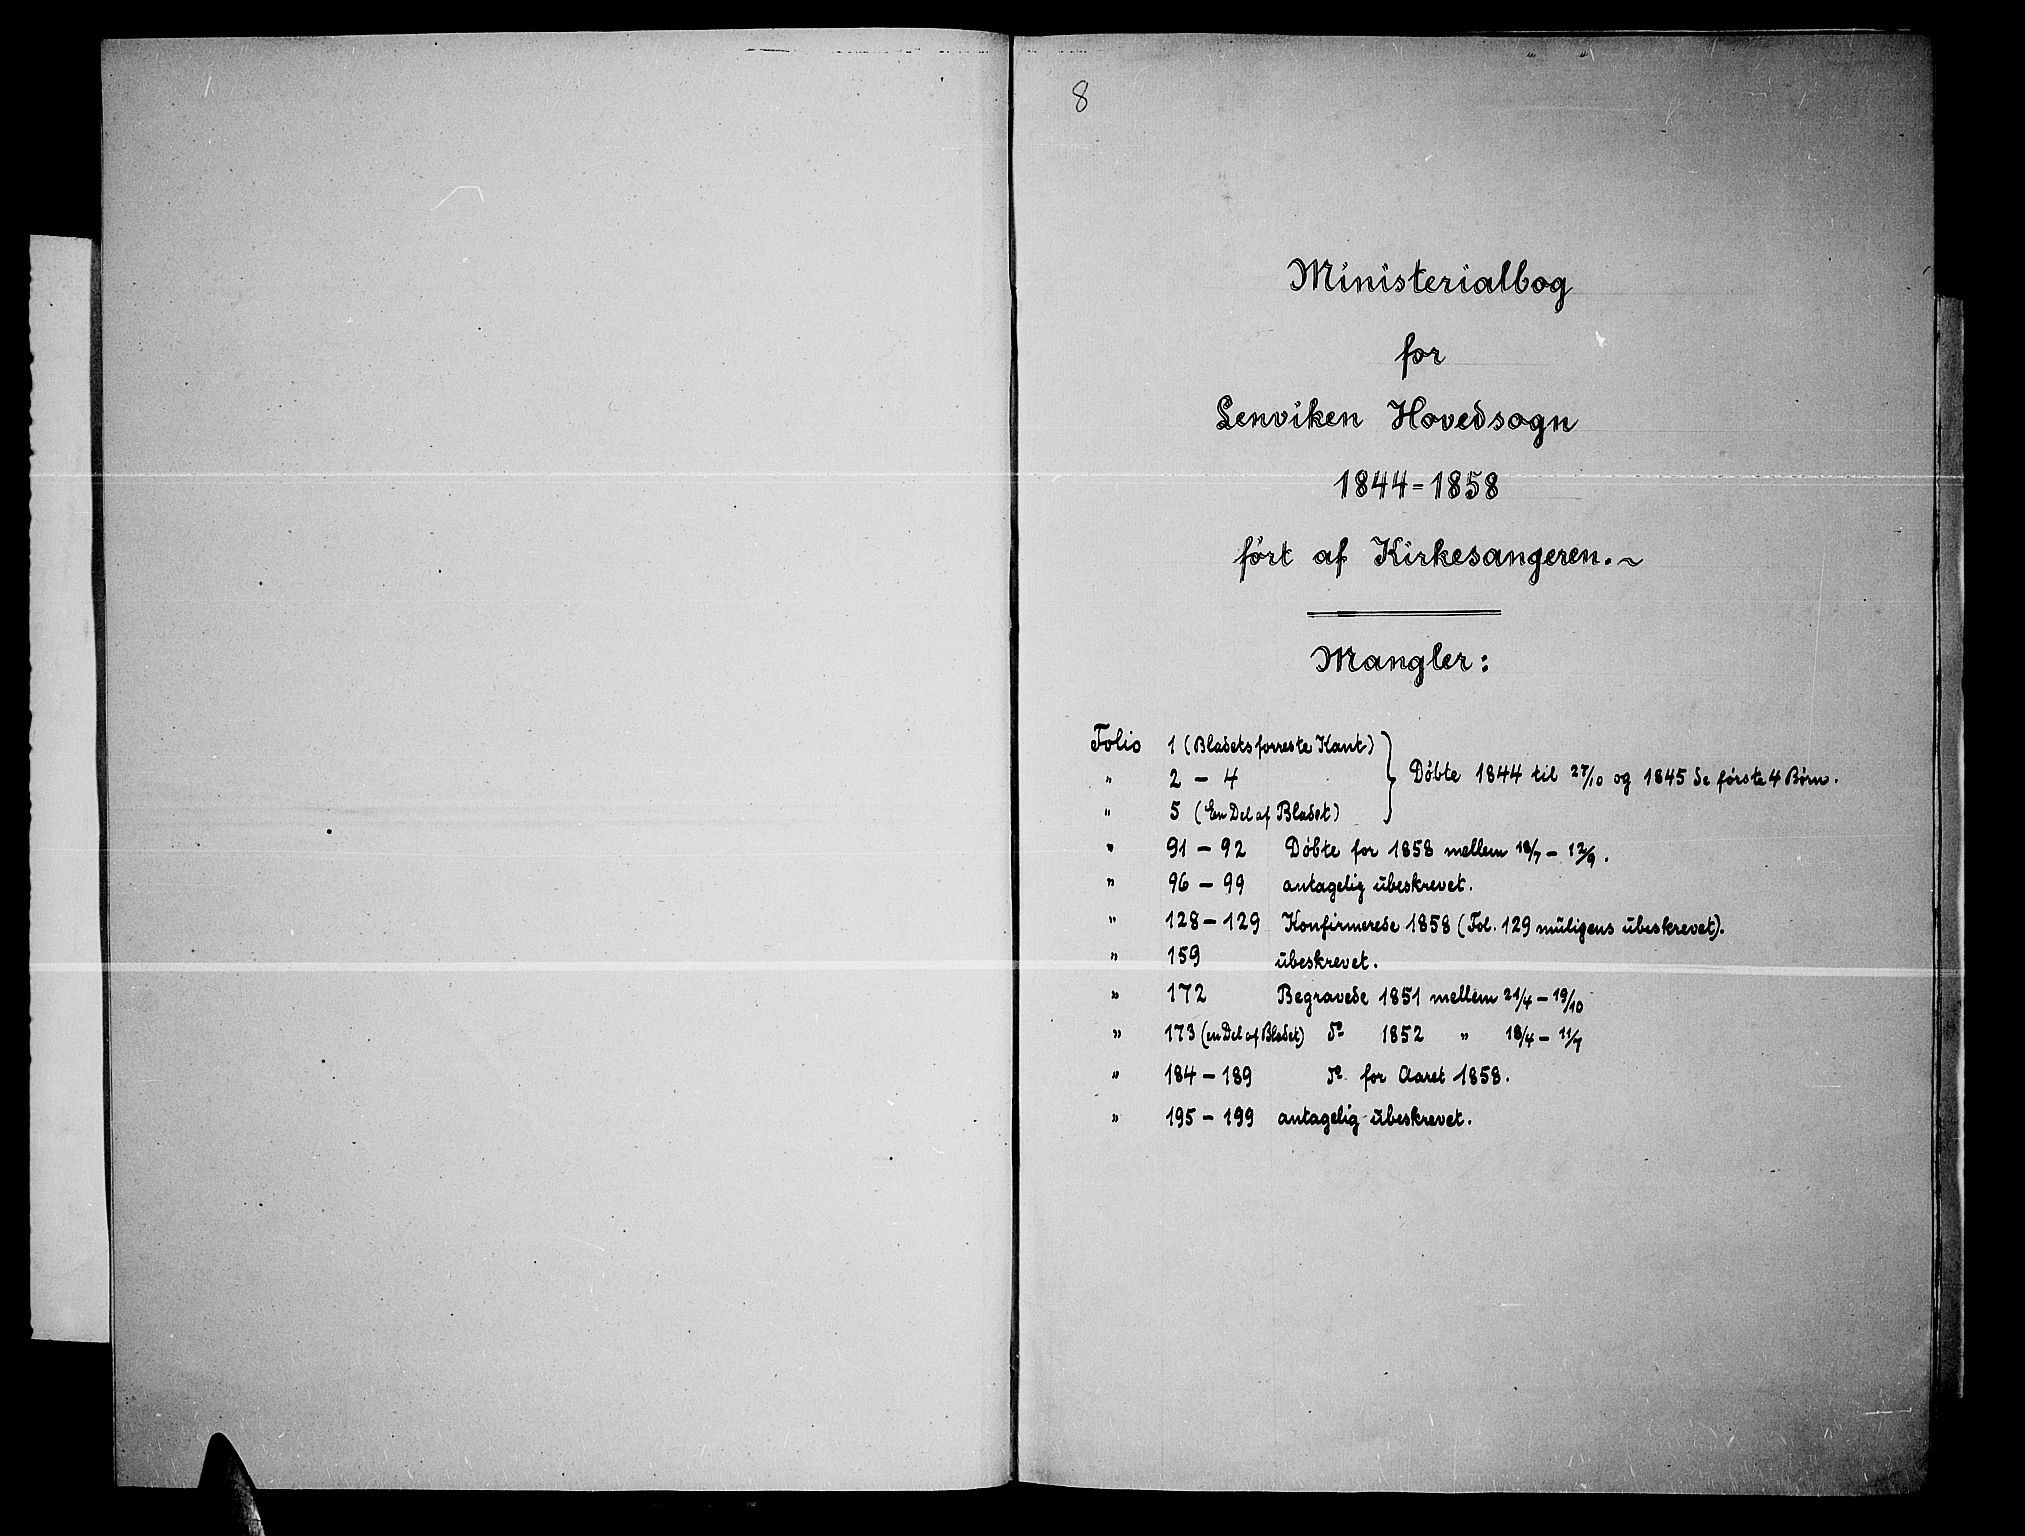 8
Ministerialbog
for
Lenviken Hovedsogn
1844=1858
ført af Kirkesangeren.~
Mangler:
Folio 1 (Bladets forreste Kant)
" 2 - 4
Døbte 1844 til 27/10 og 1845 de første 4 Børn.
" 5 (En Del af Bladet)
" 91 - 92 Døbte for 1858 mellem 18/7 - 12/9.
" 96 - 99 antagelig ubeskrevet.
" 128 - 129 Konfirmerede 1858 (Fol. 129 muligens ubeskrevet).
" 159 ubeskrevet.
" 172 Begravede 1851 mellem 21/4 - 19/10
" 173 (en Del af Bladet) do 1852 " 18/4 - 11/7
" 184 - 189 do. for Aaret 1858.
" 195 - 199 antagelig ubeskrevet.